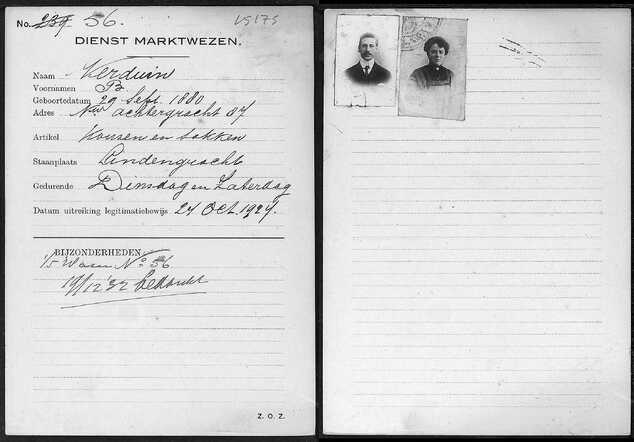 No. 239 56. V5175
DIENST MARKTWEZEN.
Naam Verduin
Voornamen B
Geboortedatum 29 Sept. 1880
Adres Nwe achtergracht 37
Artikel Kousen en sokken
Staanplaats Lindengracht
Gedurende Dinsdag en Zaterdag
Datum uitreiking legitimatiebewijs 24 Oct. 1924.
BIJZONDERHEDEN
No 56
19/12 '32
Z. O. Z.